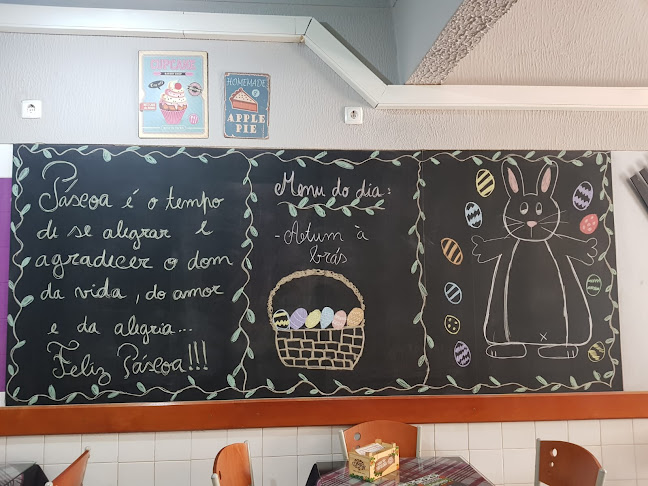 CUPCAKE
HOMEMADE
APPLE
PIE
Páscoa é o tempo
de se alegrar e
agradecer o dom
da vida, do amor
e da alegria...
Feliz Páscoa!!!
Menu do dia:
- Actum à
brás